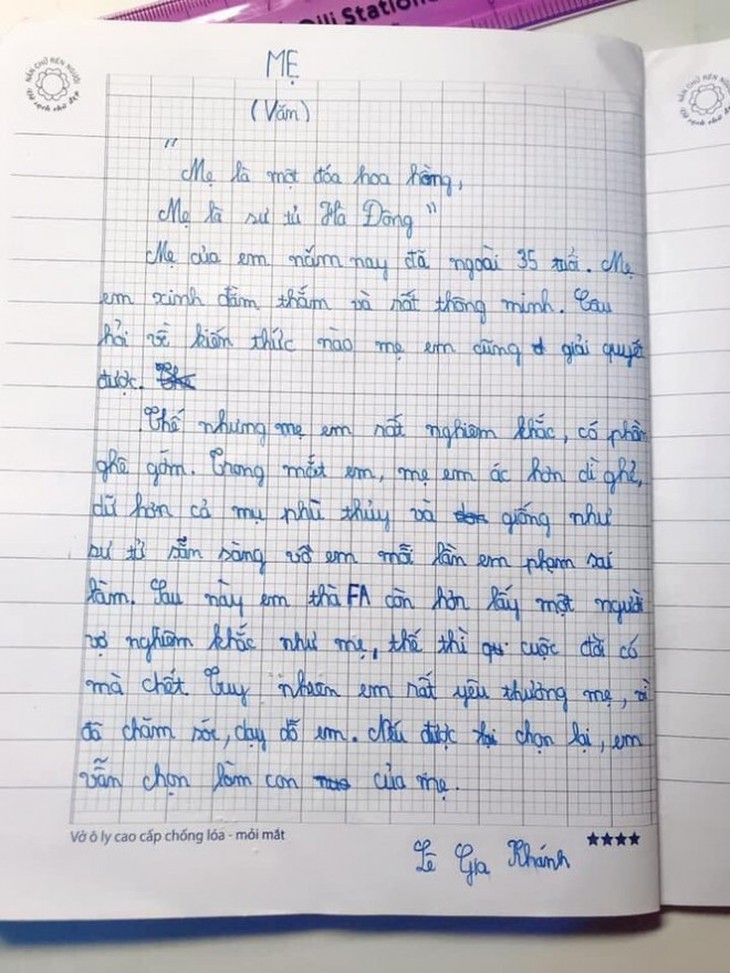 Oili Station
NẮN CHỮ RÈN NGƯỜI
Giữ sạch chữ đẹp
MẸ
(Văn)
"Mẹ là một đóa hoa hồng,
Mẹ là sư tử Hà Đông"
Mẹ của em năm nay đã ngoài 35 tuổi. Mẹ
em xinh đằm thắm và rất thông minh. Câu
hỏi về kiến thức nào mẹ em cũng giải quyết
được.
Thế nhưng mẹ em rất nghiêm khắc, có phần
ghê gớm. Trong mắt em, mẹ em ác hơn dì ghẻ,
dữ hơn cả mụ phù thủy và giống như
sư tử sẵn sàng vồ em mỗi lần em phạm sai
lầm. Sau này em thà FA còn hơn lấy một người
vợ nghiêm khắc như mẹ, thế thì cuộc đời có
mà chết. Tuy nhiên em rất yêu thương mẹ, vì
đã chăm sóc, dạy dỗ em. Nếu được chọn lại, em
vẫn chọn làm con của mẹ.
Vở ô ly cao cấp chống lóa - mỏi mắt
Lê Gia Khánh